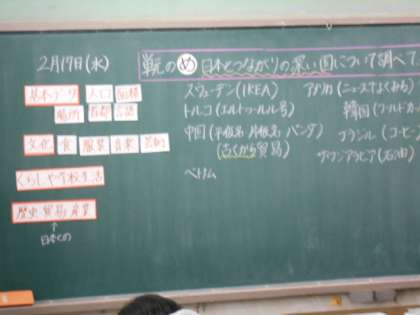 2月17日(水)
め 日本とつながりの深い国について調べて
基本データ 人口 面積
場所 首都 言語
文化 食 服装 音楽 芸術
くらしや学校生活
歴史・貿易・産業
↑
日本との
スウェーデン(IKEA)
トルコ(エルトゥールル号)
中国(平仮名 片仮名 パンダ)
(古くから貿易)
ベトナム
アメリカ(ニュースでよくみる)
韓国(ワールドカ
ブラジル(コーヒー
サウジアラビア(石油)